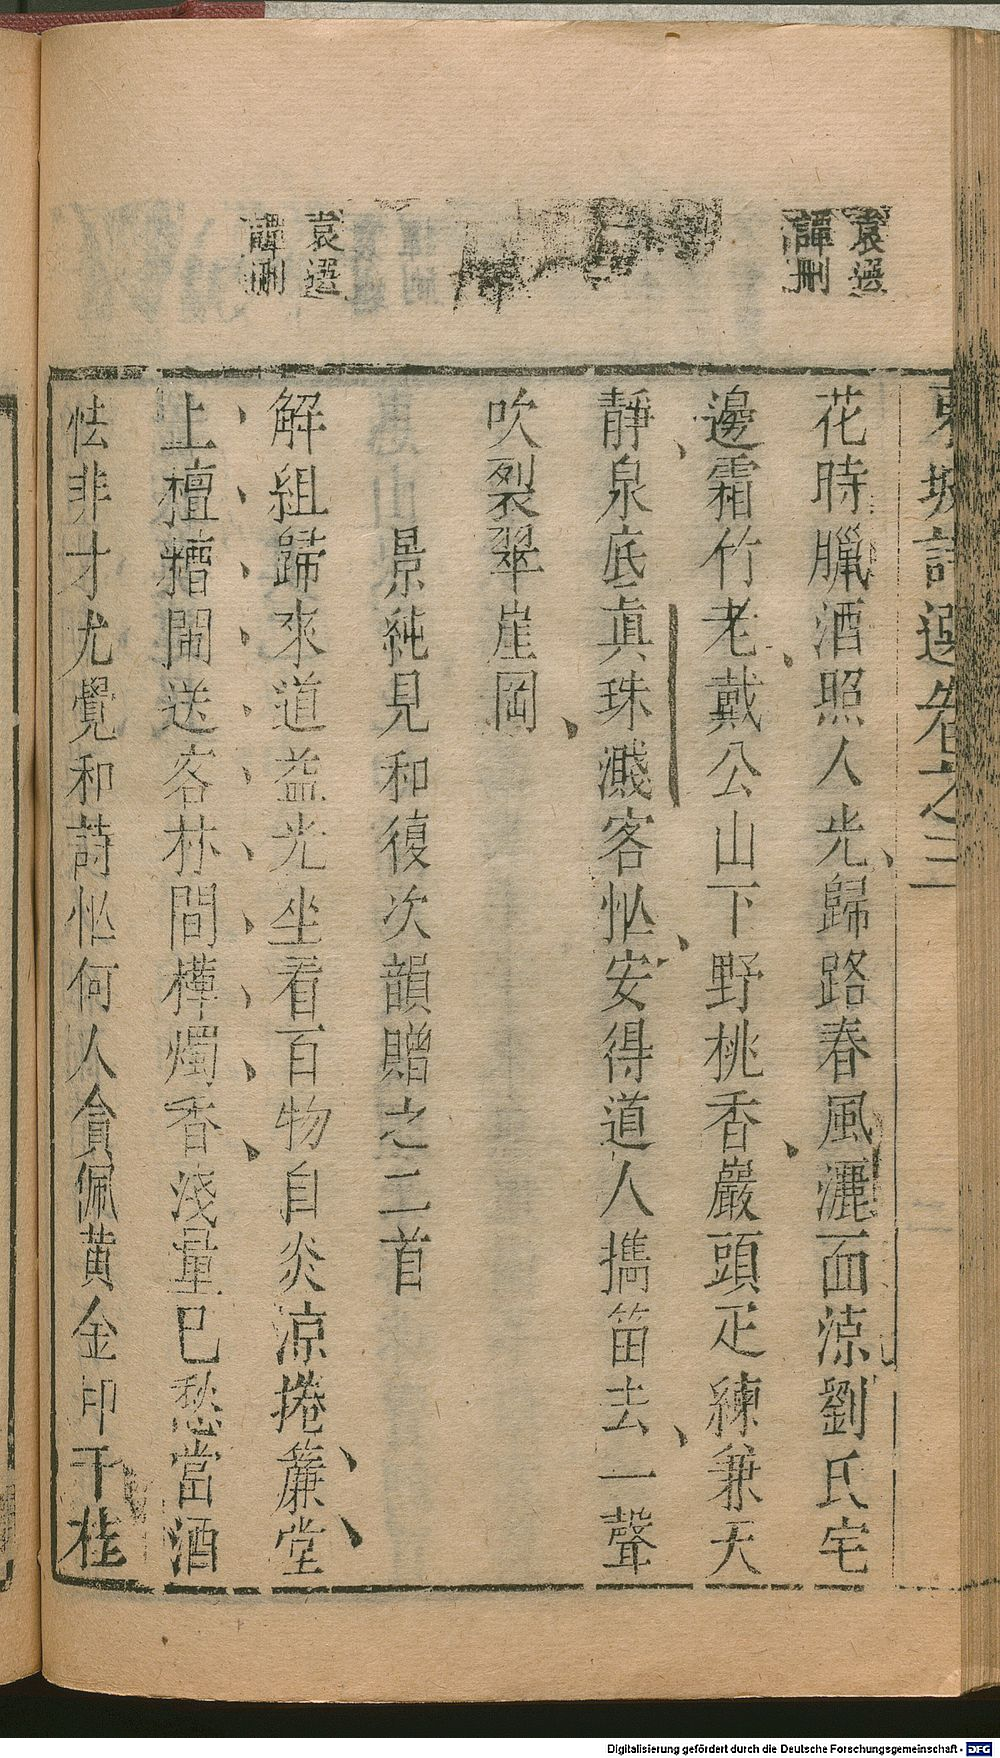 東坡詩選卷之三
袁選
譚刪
花時臘酒照人光歸路春風灑面涼劉氏宅
邊霜竹老戴公山下野桃香巖頭疋練兼天
靜泉底真珠濺客忙安得道人攜笛去一聲
吹裂翠崖岡
景純見和復次韻贈之二首
袁選
譚刪
解組歸來道益光坐看百物自炎凉捲簾堂
上檀槽鬧送客林間樺燭香淺量已愁當酒
怯非才尤覺和詩忙何人貪佩黃金印千柱
Digitalisierung gefördert durch die Deutsche Forschungsgemeinschaft - DFG